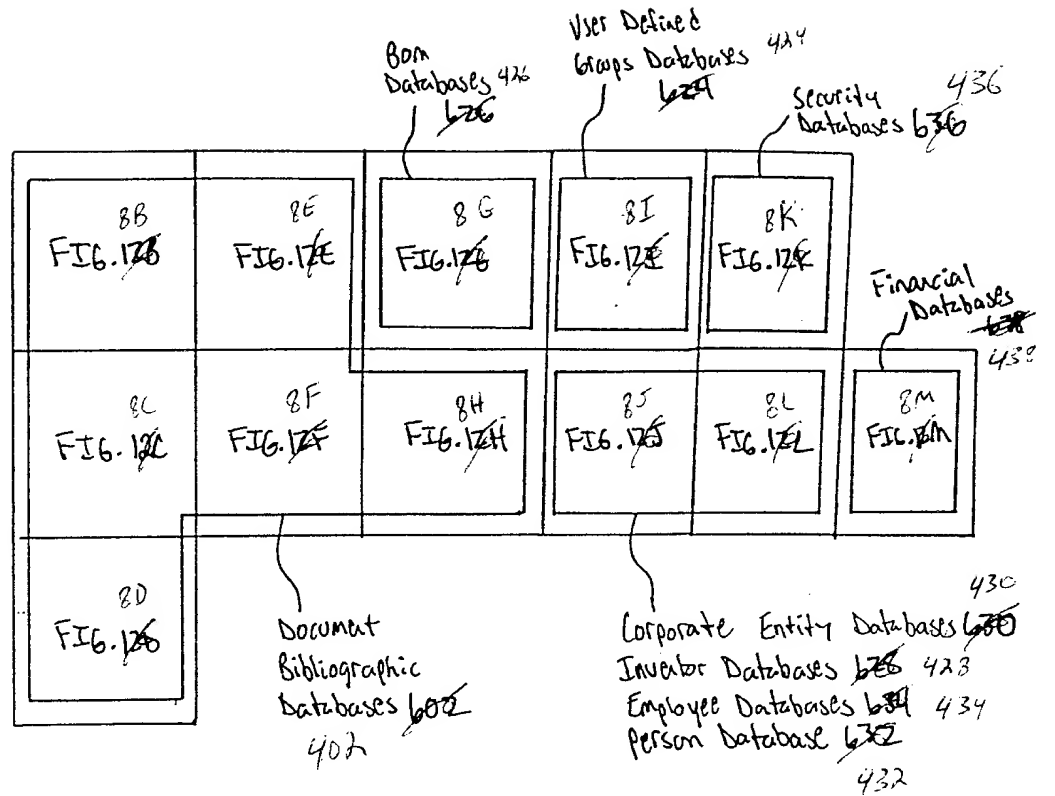 BOM
Databases 426
626
User Defined
Groups Databases 424
624
436
Security
Databases 636
8B
FIG. 12B
8E
FIG. 12E
8G
FIG. 12G
8I
FIG. 12I
8K
FIG. 12K
Financial
Databases
638
438
8C
FIG. 12C
8F
FIG. 12F
8H
FIG. 12H
8J
FIG. 12J
8L
FIG. 12L
8M
FIG. 12M
8D
FIG. 12D
Document
Bibliographic
Databases 602
402
430
Corporate Entity Databases 630
Inventor Databases 628 428
Employee Databases 634 434
person Database 632
432